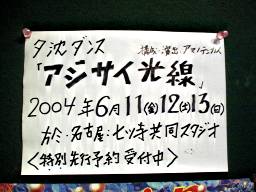 夕沈ダンス 構成・演出 アマノテンガイ
「アジサイ光線」
2004年6月11(金)12(土)13(日)
於・名古屋・七ツ寺共同スタジオ
<特別先行予約受付中>